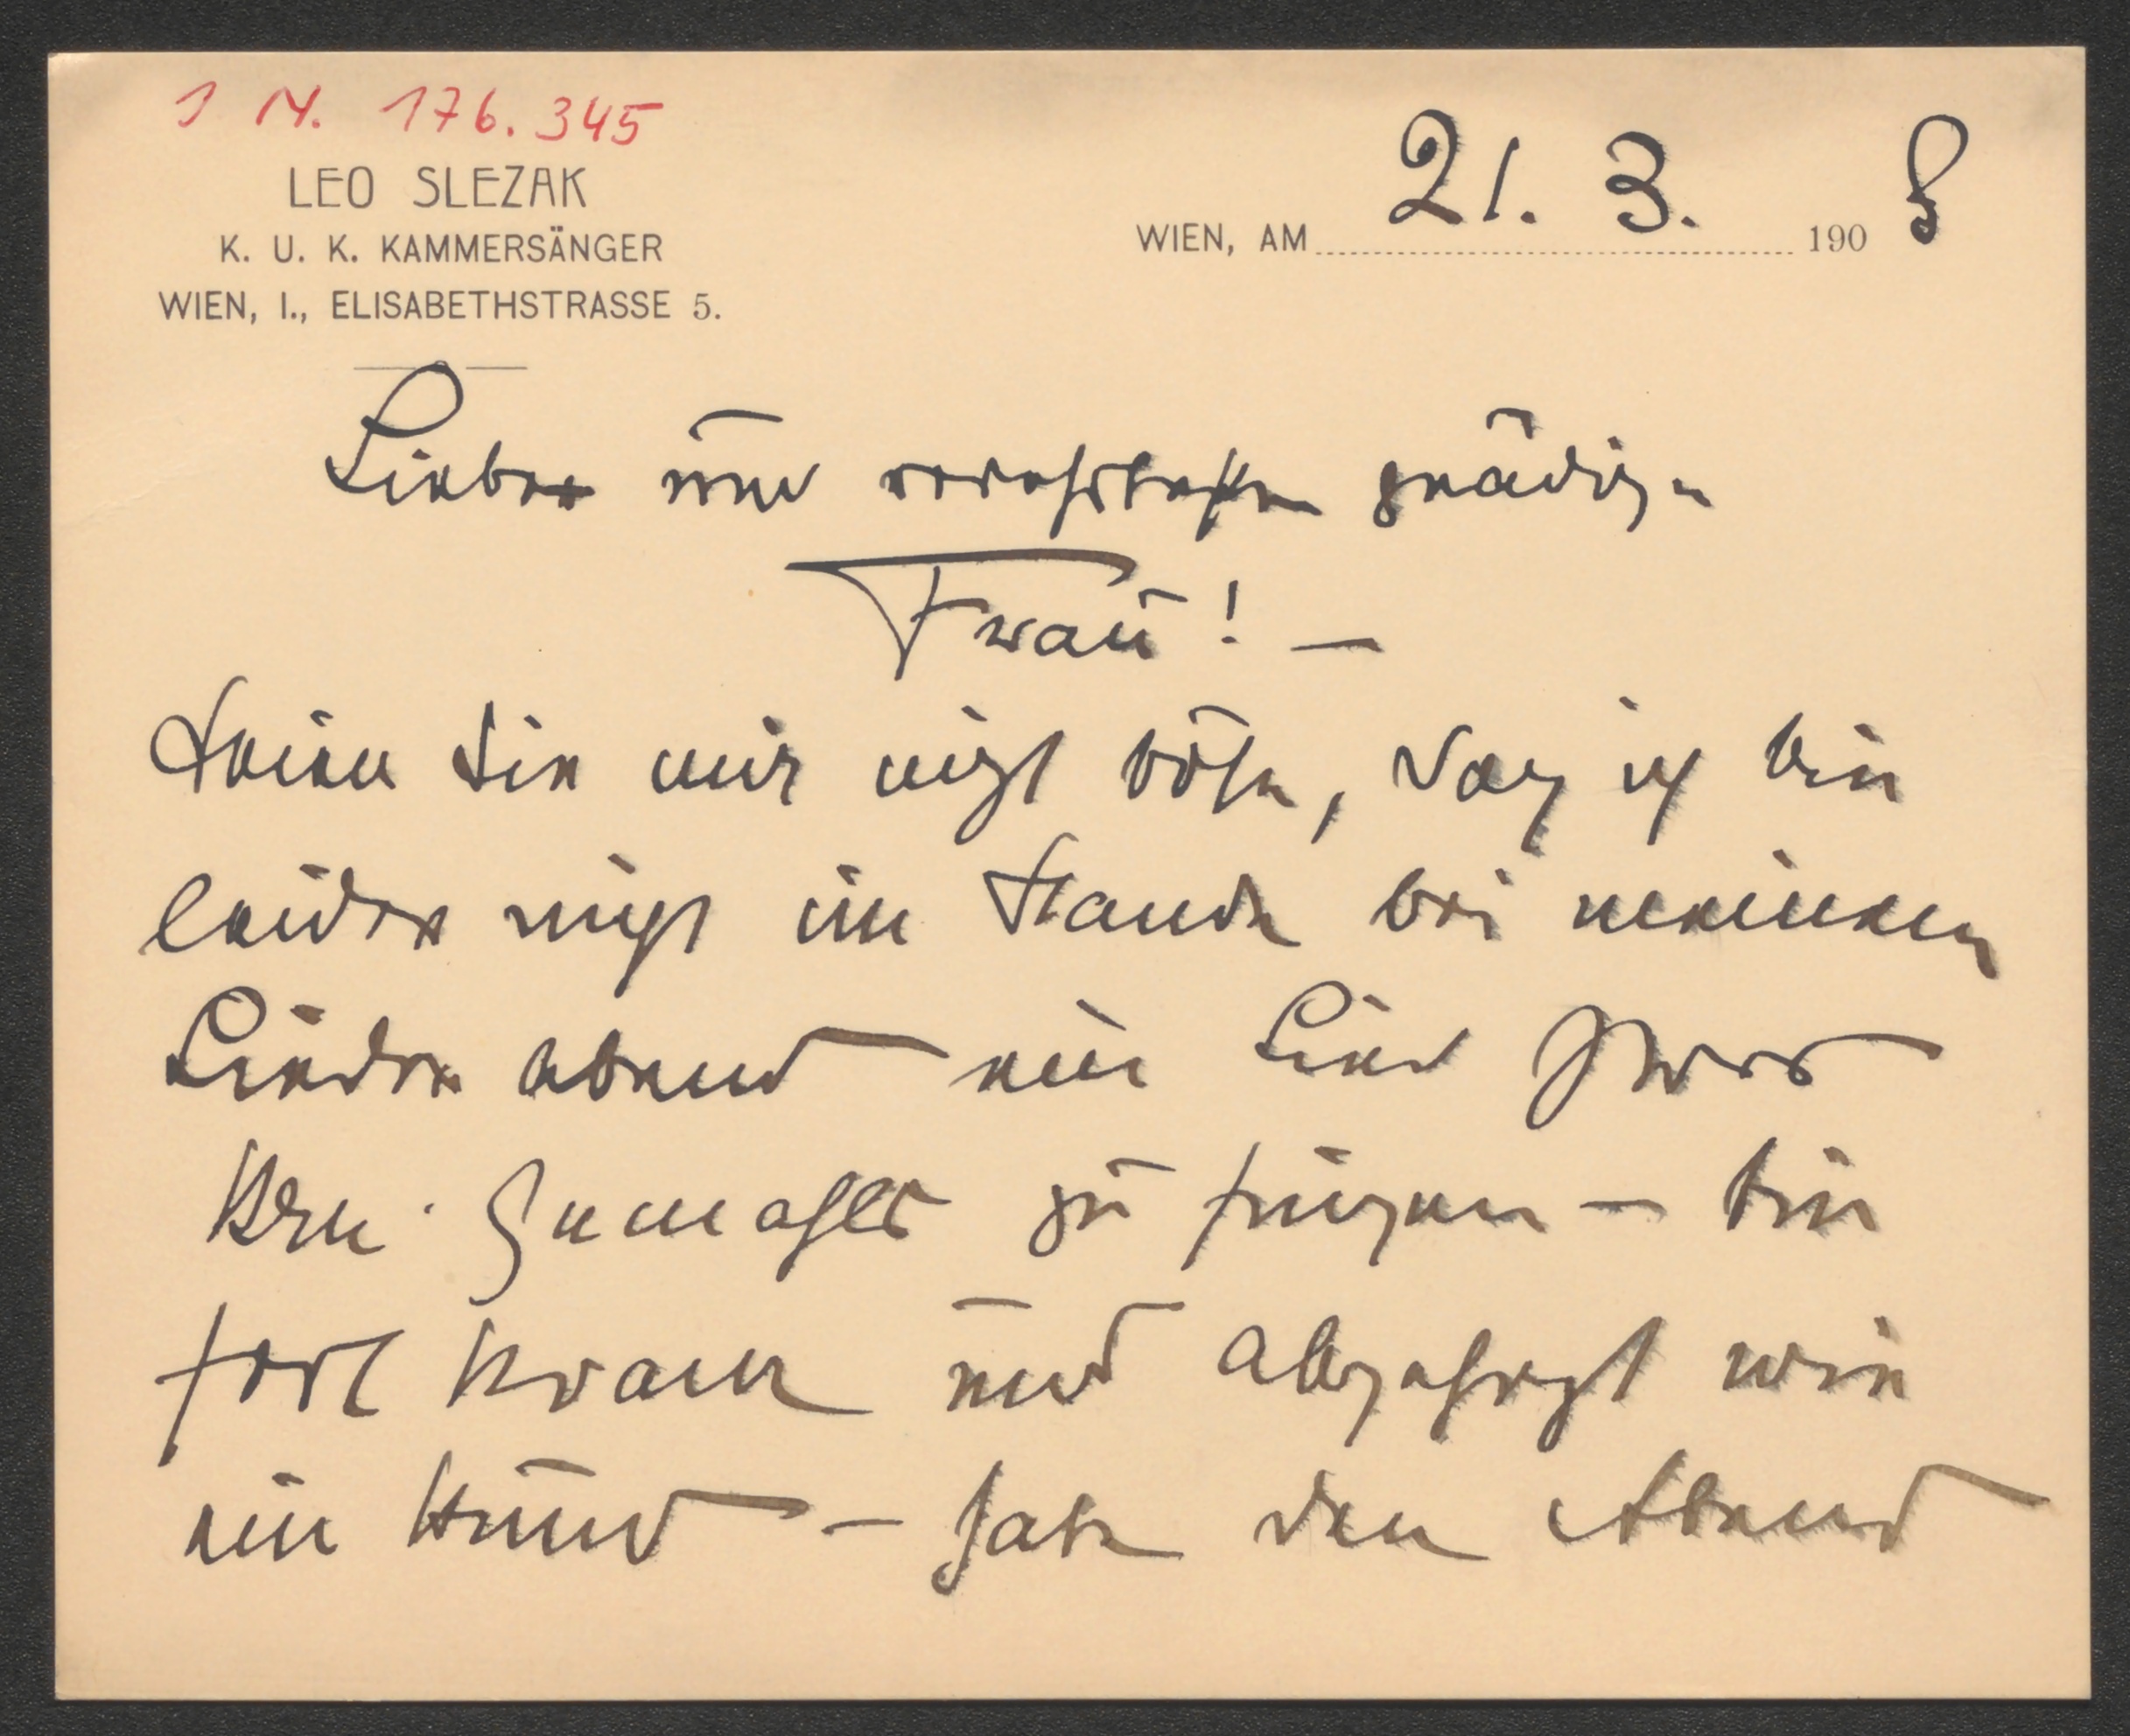 I N. 176.345
LEO SLEZAK
K. U. K. KAMMERSÄNGER
WIEN, I., ELISABETHSTRASSE 5.
WIEN, AM 21. 3. 1908
Liebe und verehrteste gnädige
Frau! —
Seien Sie mir nicht böse, daß ich bin
leider nicht im Stande bei meinem
Liederabend ein Lied Ihres
Hrn. Gemahls zu singen — bin
sort krank und abgehezt wie
ein Hund — habe den Abend